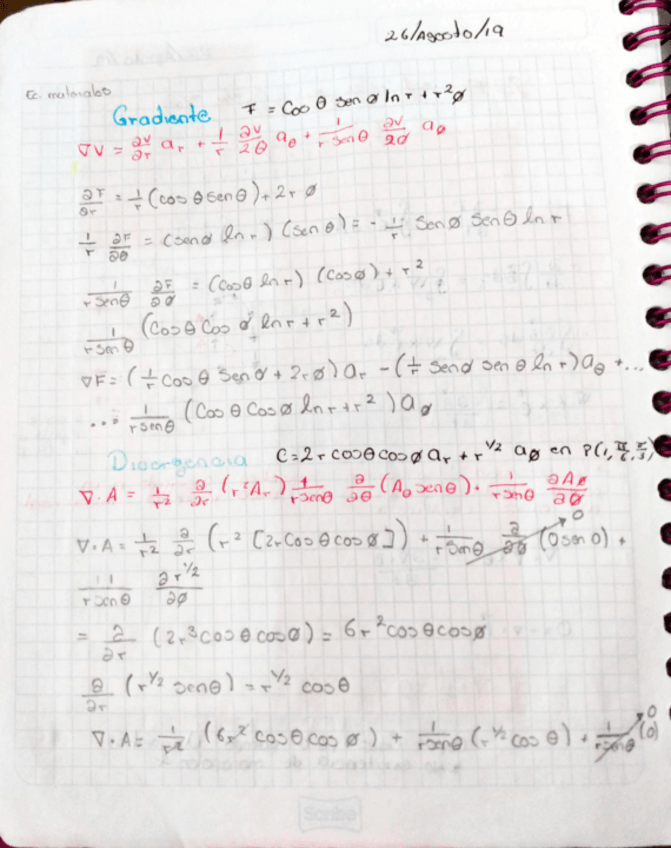 26/Agosto/19
Ec. materiales
Gradiente F = Cos θ sen ø ln r + r²ø
∇V = ∂V/∂r a_r + 1/r ∂V/∂θ a_θ + 1/(r senθ) ∂V/∂ø a_ø
∂F/∂r = 1/r (cos θ sen θ) + 2r ø
1/r ∂F/∂θ = (senø ln r) (sen θ) = - 1/r sen ø sen θ ln r
1/(r senθ) ∂F/∂ø = (cos θ ln r) (cos ø) + r²
1/(r sen θ) (Cos θ Cos ø ln r + r²)
∇F = (1/r cos θ sen ø + 2rø) a_r - (1/r senø sen θ ln r) a_θ + ...
... = 1/(r senθ) (Cos θ Cos ø ln r + r²) a_ø
Divergencia C = 2r cosθ cosø a_r + r^1/2 a_ø en P(1, π/6, π/3)
∇·A = 1/r² ∂/∂r (r²A_r) 1/(r senθ) ∂/∂θ (A_θ senθ) · 1/(r senθ) ∂A_ø/∂ø
∇·A = 1/r² ∂/∂r (r² [2r Cos θ cos ø]) + 1/(r senθ) ∂/∂ø (0 sen 0) + 0
1/(r sen θ) ∂r^1/2/∂ø
= ∂/∂r (2r³ cos θ cos ø) = 6r² cos θ cos ø
∂/∂r (r^1/2 sen θ) = r^1/2 cos θ
∇·A = 1/r² (6r² cos θ cos ø) + 1/(r senθ) (r^1/2 cos θ) + 1/(r senθ) (0) 0
Scribe